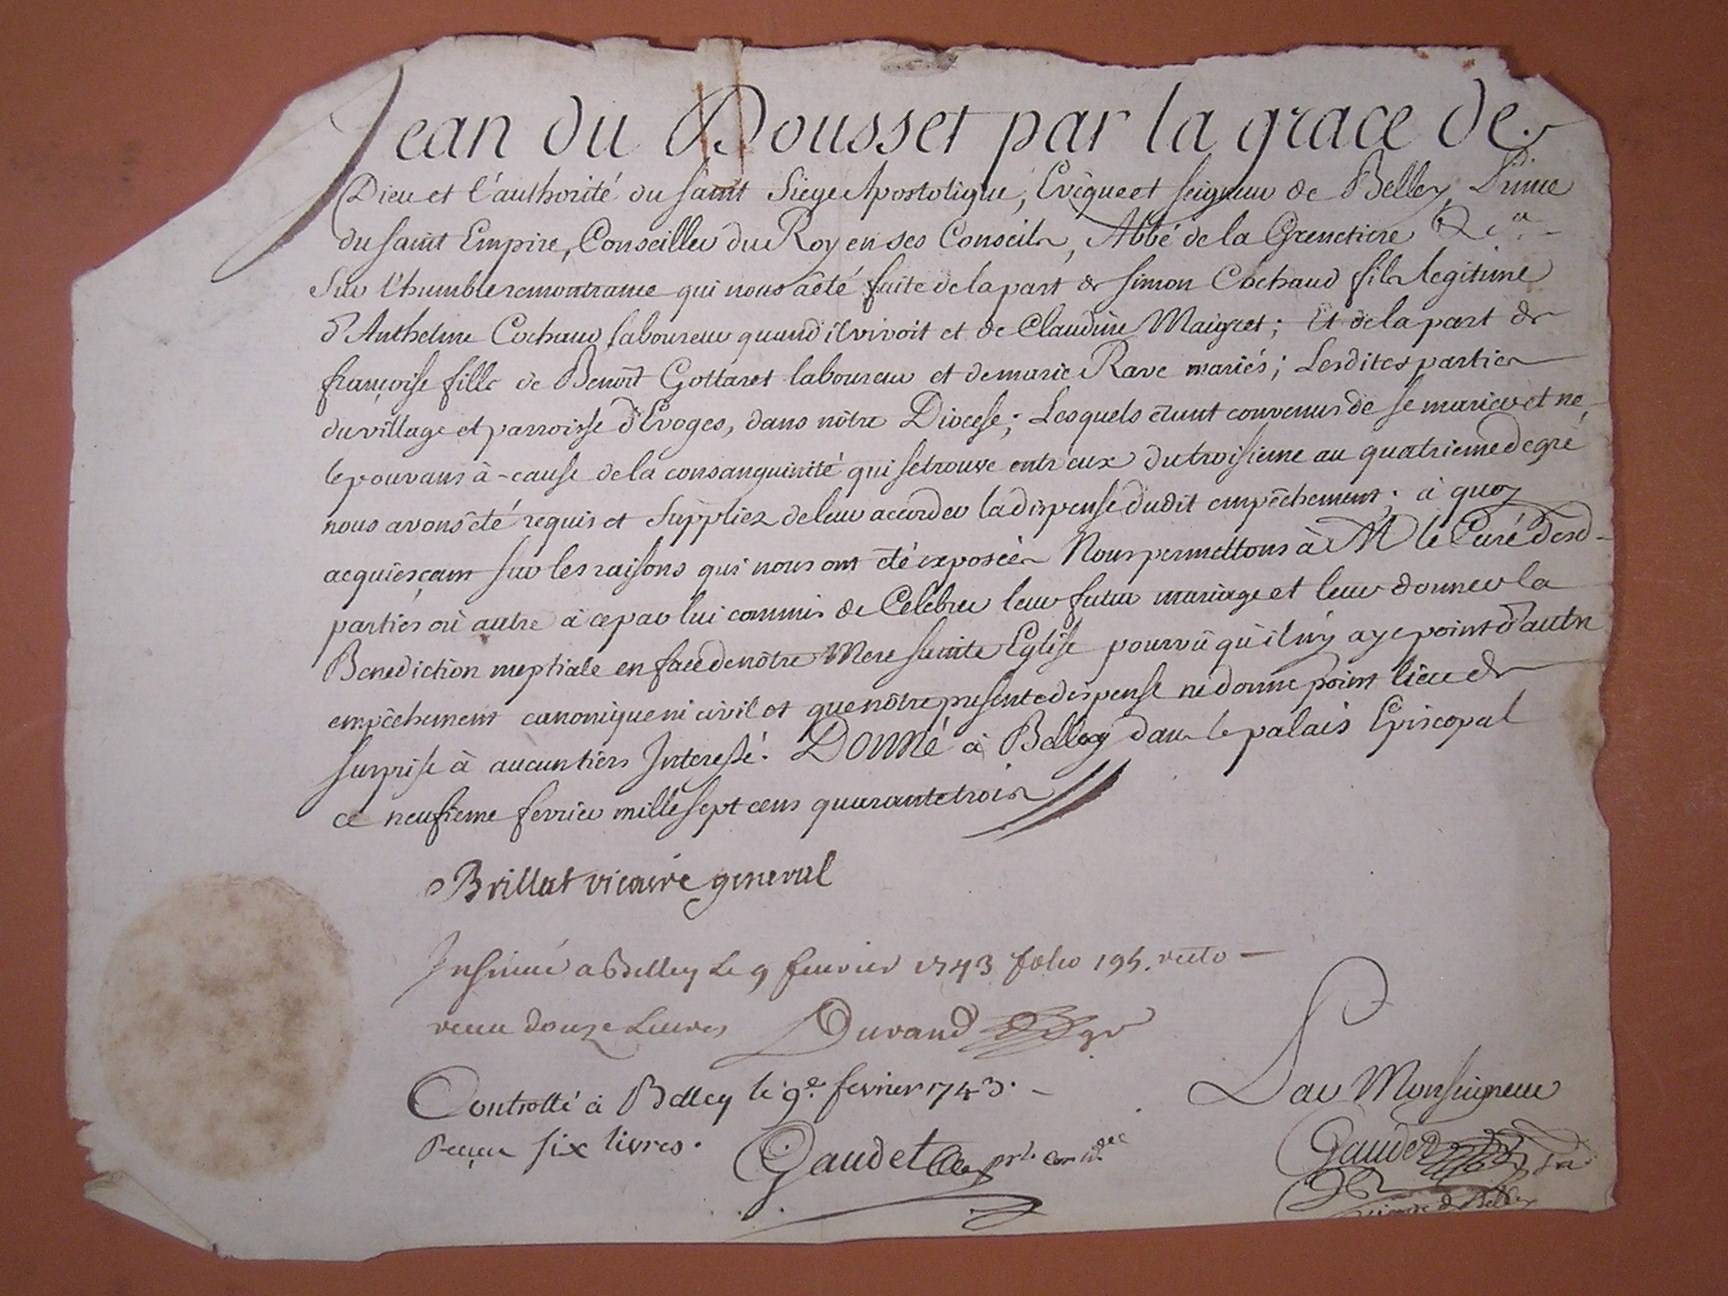 Jean du Dousset par la grace de
Dieu et l'authorité du saint Siege Apostolique, Evêque et seigneur de Belley, Prince
du saint Empire, Conseiller du Roy en ses Conseils, Abbé de la Grenetiere &c.a
Sur l'humble remontrance qui nous a êté faite de la part de Simon Cochaud fils legitime
d'Anthelme Cochaud laboureur quand il vivoit et de Claudine Maigret; Et de la part de
françoise fille de Benoît Gottaret laboureur et de marie Rave mariés; Lesdites parties
du village et parroisse d'Evoges, dans nôtre Diocese; Lesquels êtant convenus de se marier et ne
le pouvans à-cause de la consanguinité qui se trouve entr'eux du troisieme au quatrieme degré
nous avons êté requis et suppliez de leur accorder la dispense dudit empêchement; à quoy
acquiesçant sur les raisons qui nous ont êté exposées Nous permettons à M le Curé desd-
parties où autre à ce par lui commis de Celebrer leur futur mariage et leur donner la
Benediction nuptiale en face de nôtre Mere sainte Eglise pourvû qu'il n'y aye point d'autre
empêchement canonique ni civil et que nôtre presente dispense ne donne point lieu de
surprise à aucun tiers Interessé. Donné à Belley dans le palais Episcopal
ce neufieme fevrier mille sept cens quarante trois
Brillat vicaire general
Insinué a Belley Le 9 feuvrier 1743 folio 195. recto
receu douze Livres Durand gr
Controllé à Belley le 9e fevrier 1743.
Receu six livres. Gaudet
Par Monseigneur
Gaudet